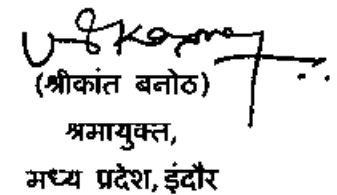 (श्रीकांत बनोठ)
श्रमायुक्त,
मध्य प्रदेश, इंदौर